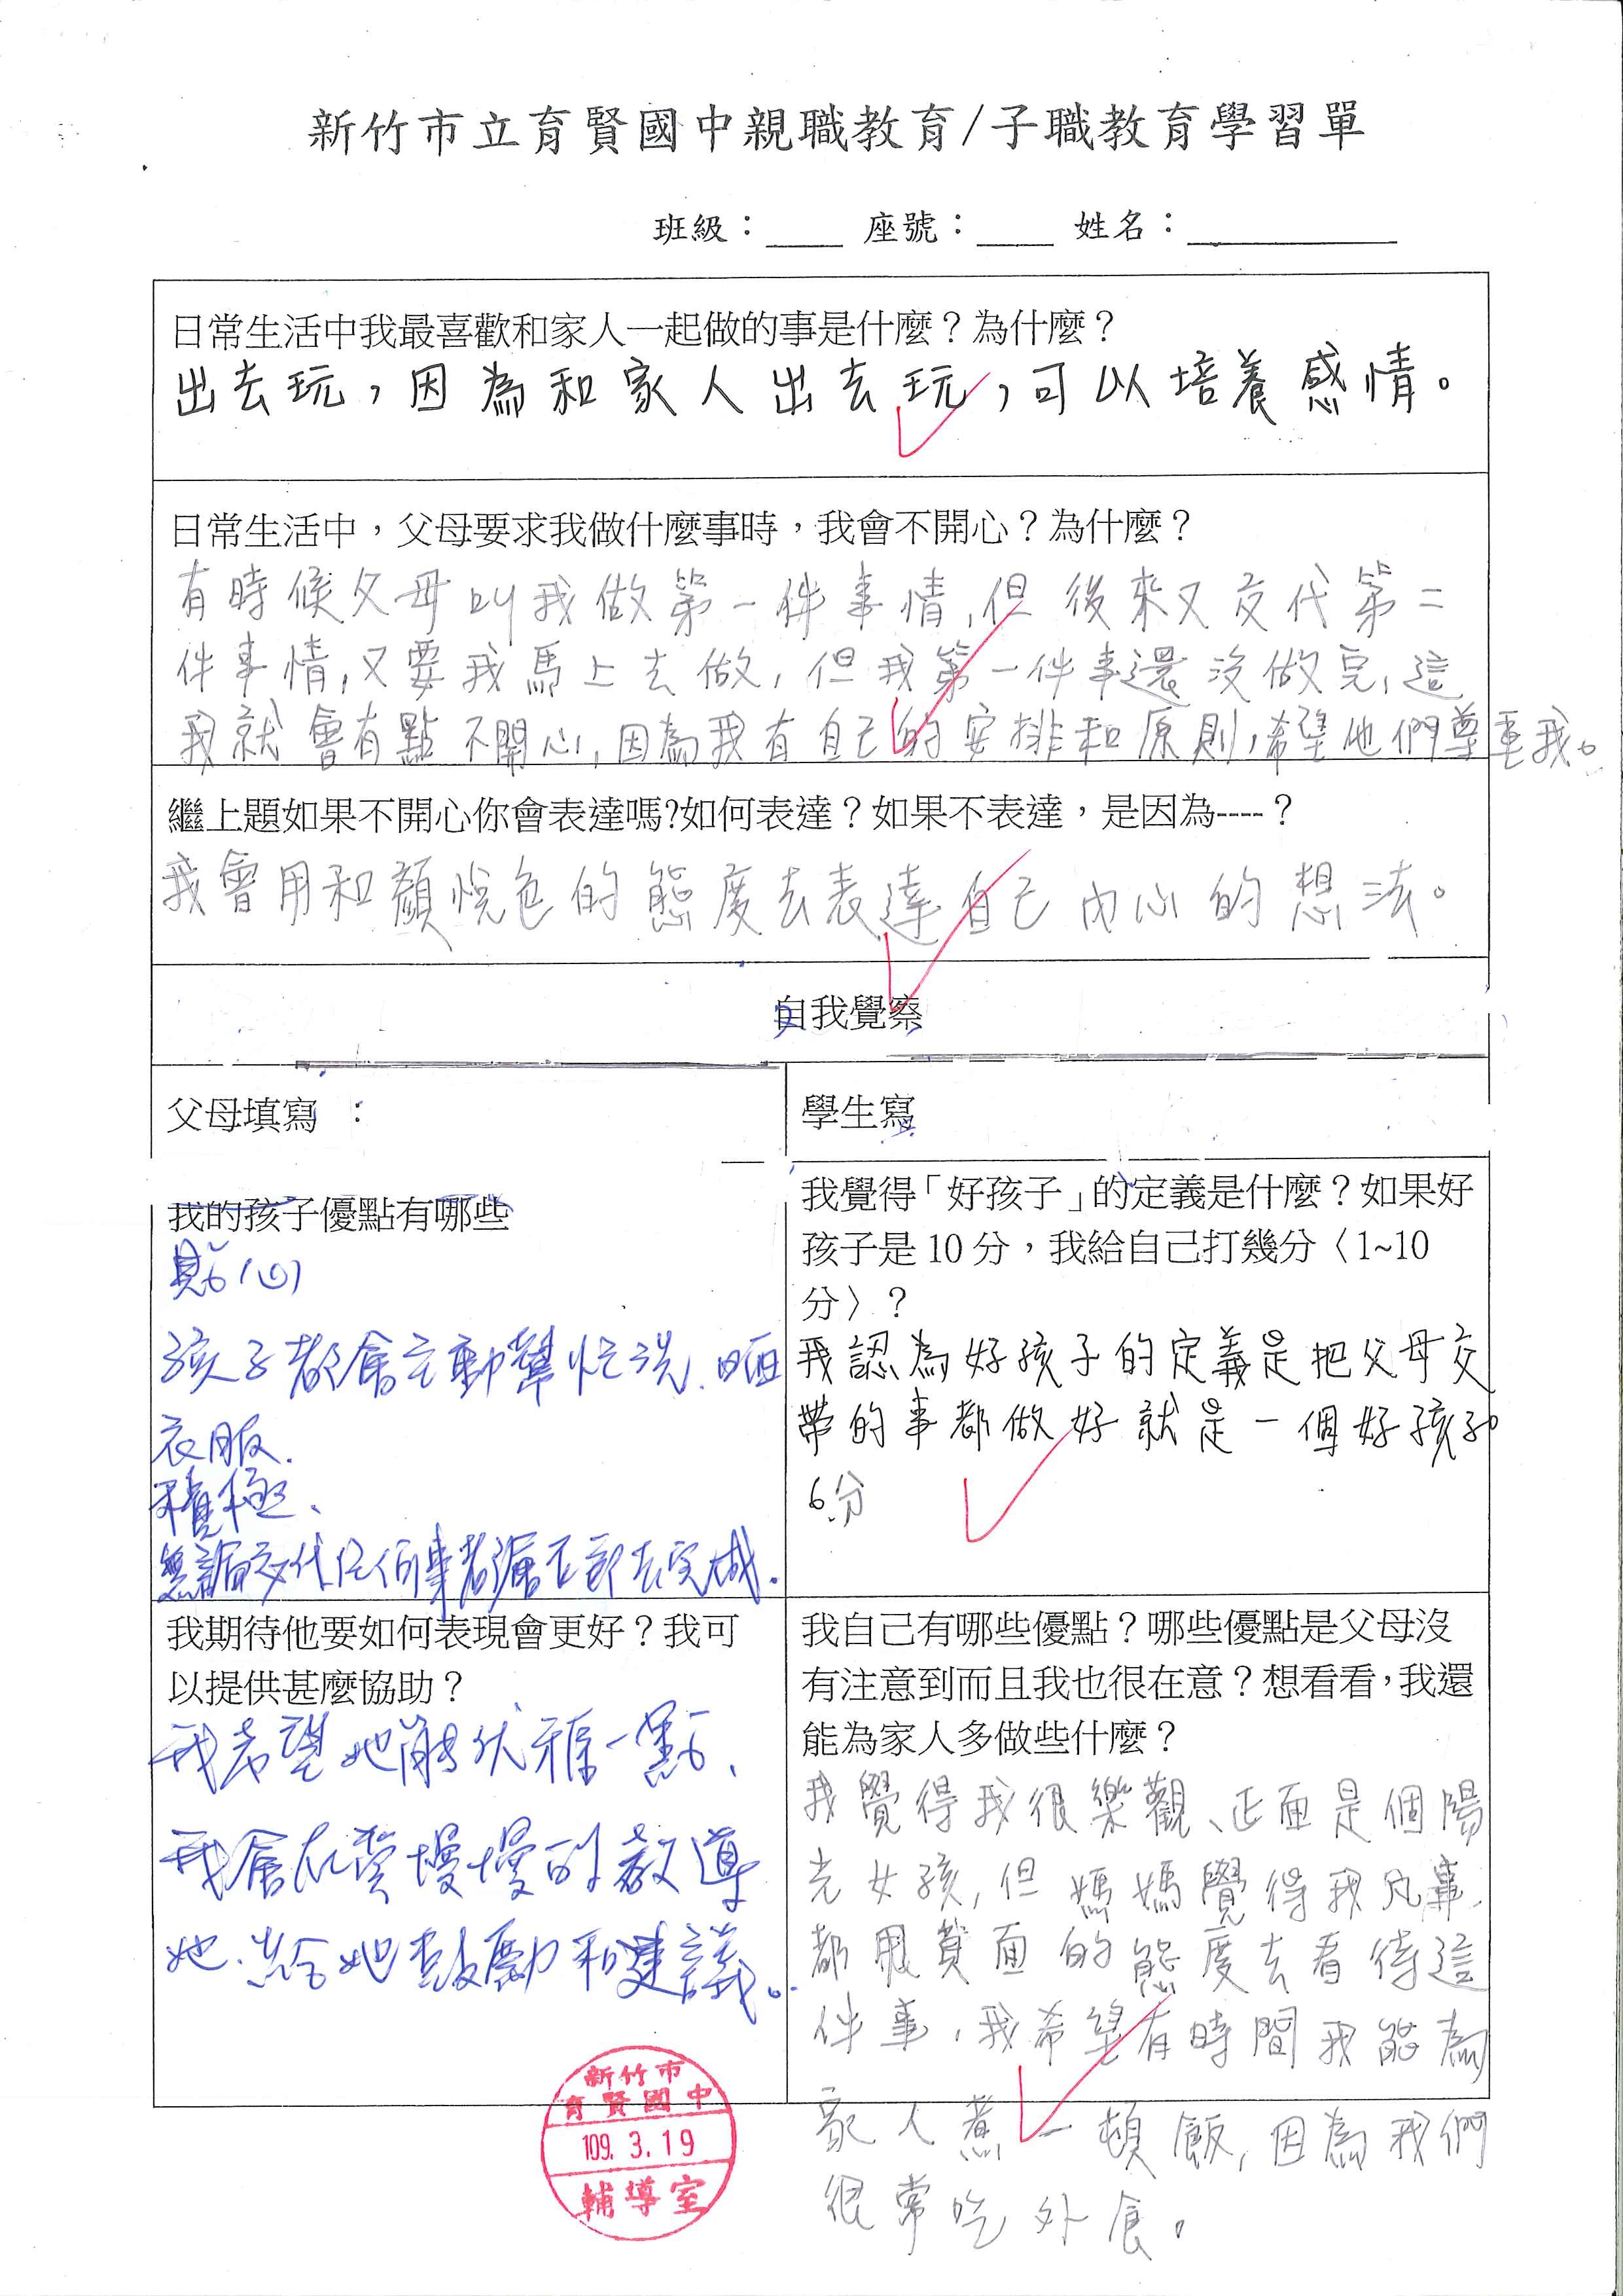 新竹市立育賢國中親職教育/子職教育學習單
班級：____ 座號：____ 姓名：__________
日常生活中我最喜歡和家人一起做的事是什麼？為什麼？
出去玩，因為和家人出去玩，可以培養感情。
日常生活中，父母要求我做什麼事時，我會不開心？為什麼？
有時候父母叫我做第一件事情，但後來又交代第二
件事情，又要我馬上去做，但我第一件事還沒做完，這
我就會有點不開心，因為我有自己的安排和原則，希望他們尊重我。
繼上題如果不開心你會表達嗎?如何表達？如果不表達，是因為----？
我會用和顏悅色的態度去表達自己內心的想法。
自我覺察
父母填寫 ：
我的孩子優點有哪些
貼心
孩子都會主動幫忙洗、晒
衣服.
積極、
無論交代任何事都會立即去完成.
學生寫
我覺得「好孩子」的定義是什麼？如果好
孩子是 10 分，我給自己打幾分〈1~10
分〉？
我認為好孩子的定義是把父母交
帶的事都做好就是一個好孩子。
6分
我期待他要如何表現會更好？我可
以提供甚麼協助？
我希望她能優雅一點、
我會在旁慢慢的教導
她.給她鼓勵和建議。
我自己有哪些優點？哪些優點是父母沒
有注意到而且我也很在意？想看看，我還
能為家人多做些什麼？
我覺得我很樂觀、正面是個陽
光女孩，但媽媽覺得我凡事
都用負面的態度去看待這
件事，我希望有時間我能為
家人煮一頓飯，因為我們
很常吃外食。
新竹市
育賢國中
109. 3. 19
輔導室